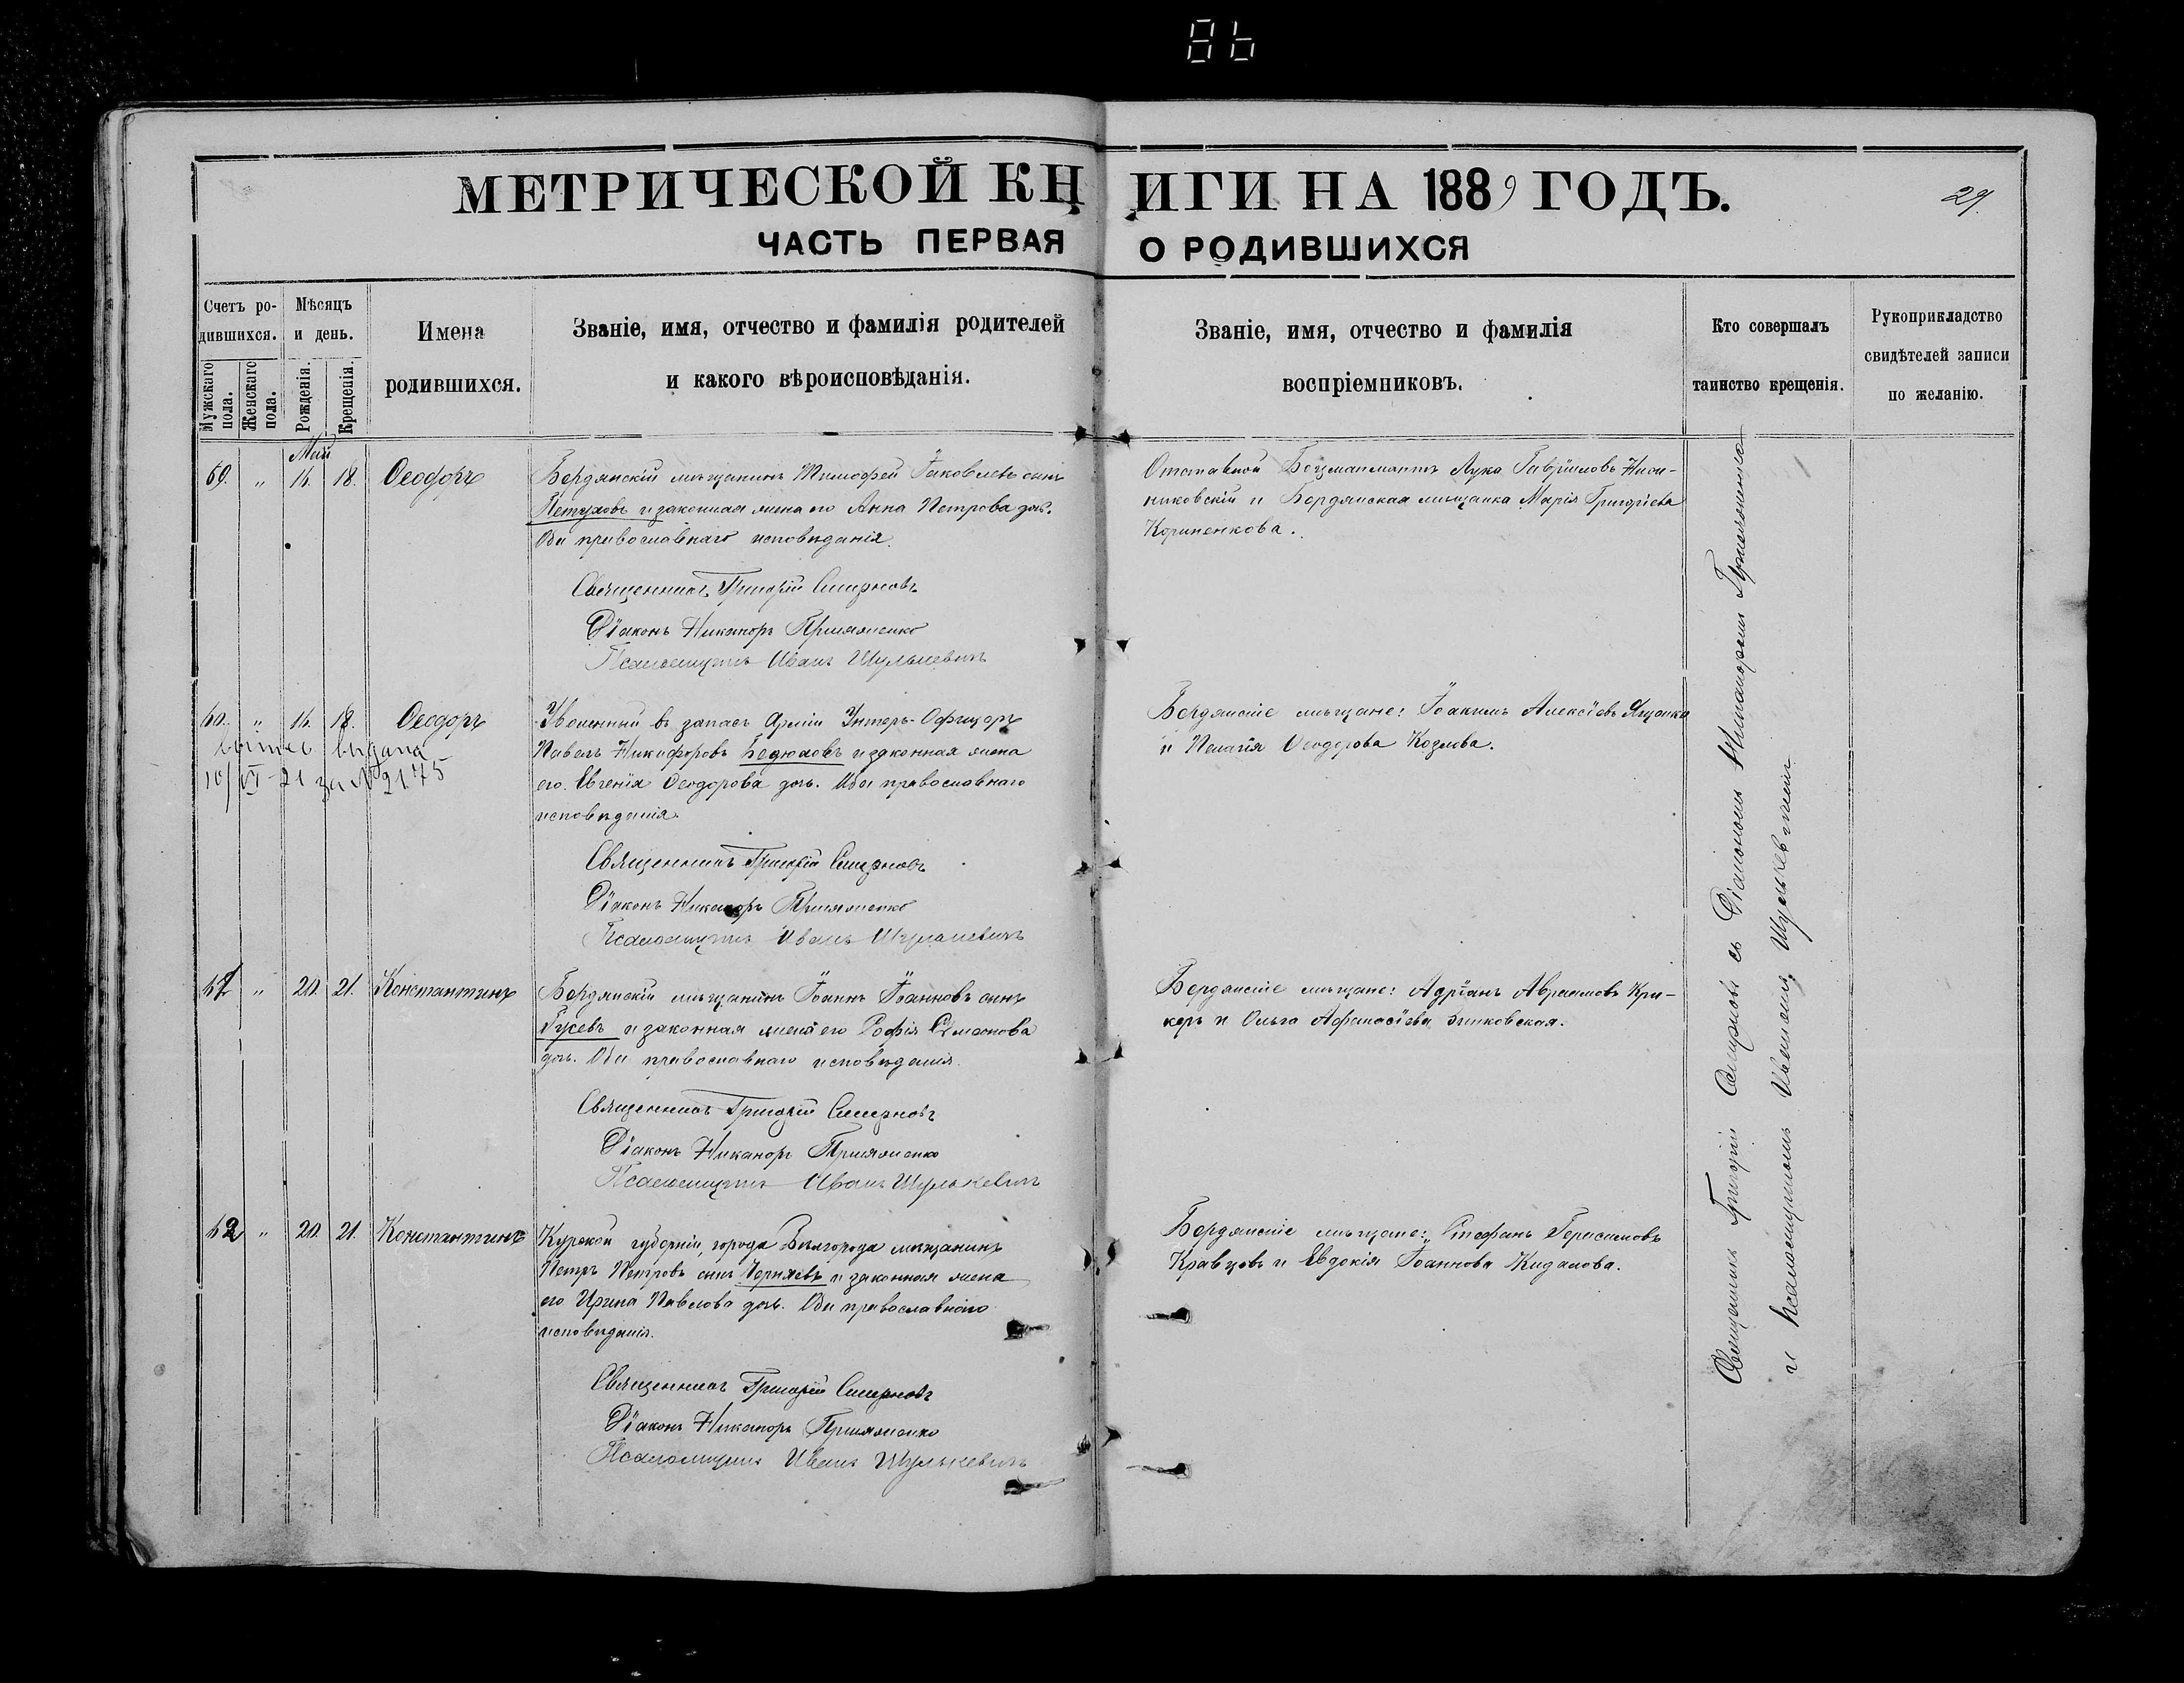 МЕТРИЧЕСКОЙ КНИГИ НА 1889 ГОДЪ.
29.
ЧАСТЬ ПЕРВАЯ О РОДИВШИХСЯ
Счетъ родившихся.
Мужскаго пола.
Женскаго пола.
Мѣсяцъ и день.
Рожденія.
Крещенія.
Имена
родившихся.
Званіе, имя, отчество и фамилія родителей
и какого вѣроисповѣданія.
Званіе, имя, отчество и фамилія
воспріемниковъ.
Кто совершалъ
таинство крещенія.
Рукоприкладство
свидѣтелей записи
по желанію.
Май
59. „ 16. 18. Ѳеодоръ
Бердянскій мѣщанинъ Тимофей Іаковлевъ сынъ
Петуховъ и законная жена его Анна Петрова дочь.
Оба православнаго исповѣданія.
Отставной Боцманматъ Лука Гавріиловъ
и Бердянская мѣщанка Марія Григоріева
Священникъ Григорій Смирновъ
Діаконъ Никаноръ
Псаломщикъ Иванъ Шулькевичъ
60. „ 16. 18. Ѳеодоръ
выпись выдана
10/VI-21 за №2175
Уволенный въ запасъ Арміи Унтеръ-Офицеръ
Павелъ Никифоровъ Бедюховъ и законная жена
его Евгенія Ѳеодорова дочь. Оба православнаго
исповѣданія.
Бердянскіе мѣщане: Іоакимъ Алексіевъ Яценко
и Пелагія Ѳеодорова Козлова.
Священникъ Григорій Смирновъ
Діаконъ Никаноръ
Псаломщикъ Иванъ Шулькевичъ
61 „ 20. 21. Константинъ
Бердянскій мѣщанинъ Іоаннъ Іоанновъ сынъ
Гусевъ и законная жена его Софія Симеонова
дочь. Оба православнаго исповѣданія.
Бердянскіе мѣщане: Адріанъ Авраамовъ
и Ольга Афанасіева Зинковская.
Священникъ Григорій Смирновъ
Діаконъ Никаноръ
Псаломщикъ Иванъ Шулькевичъ
62 „ 20. 21. Константинъ
Курской губерніи, города Бѣлгорода мѣщанинъ
Петръ Петровъ сынъ Черняевъ и законная жена
его Ирина Павлова дочь. Оба православнаго
исповѣданія.
Бердянскіе мѣщане: Стефанъ Герасимовъ
Кравцовъ и Евдокія Іоаннова Жидалова.
Священникъ Григорій Смирновъ
Діаконъ Никаноръ
Псаломщикъ Иванъ Шулькевичъ
Священникъ Григорій Смирновъ съ Діакономъ Никаноромъ
и псаломщикомъ Иваномъ Шулькевичемъ